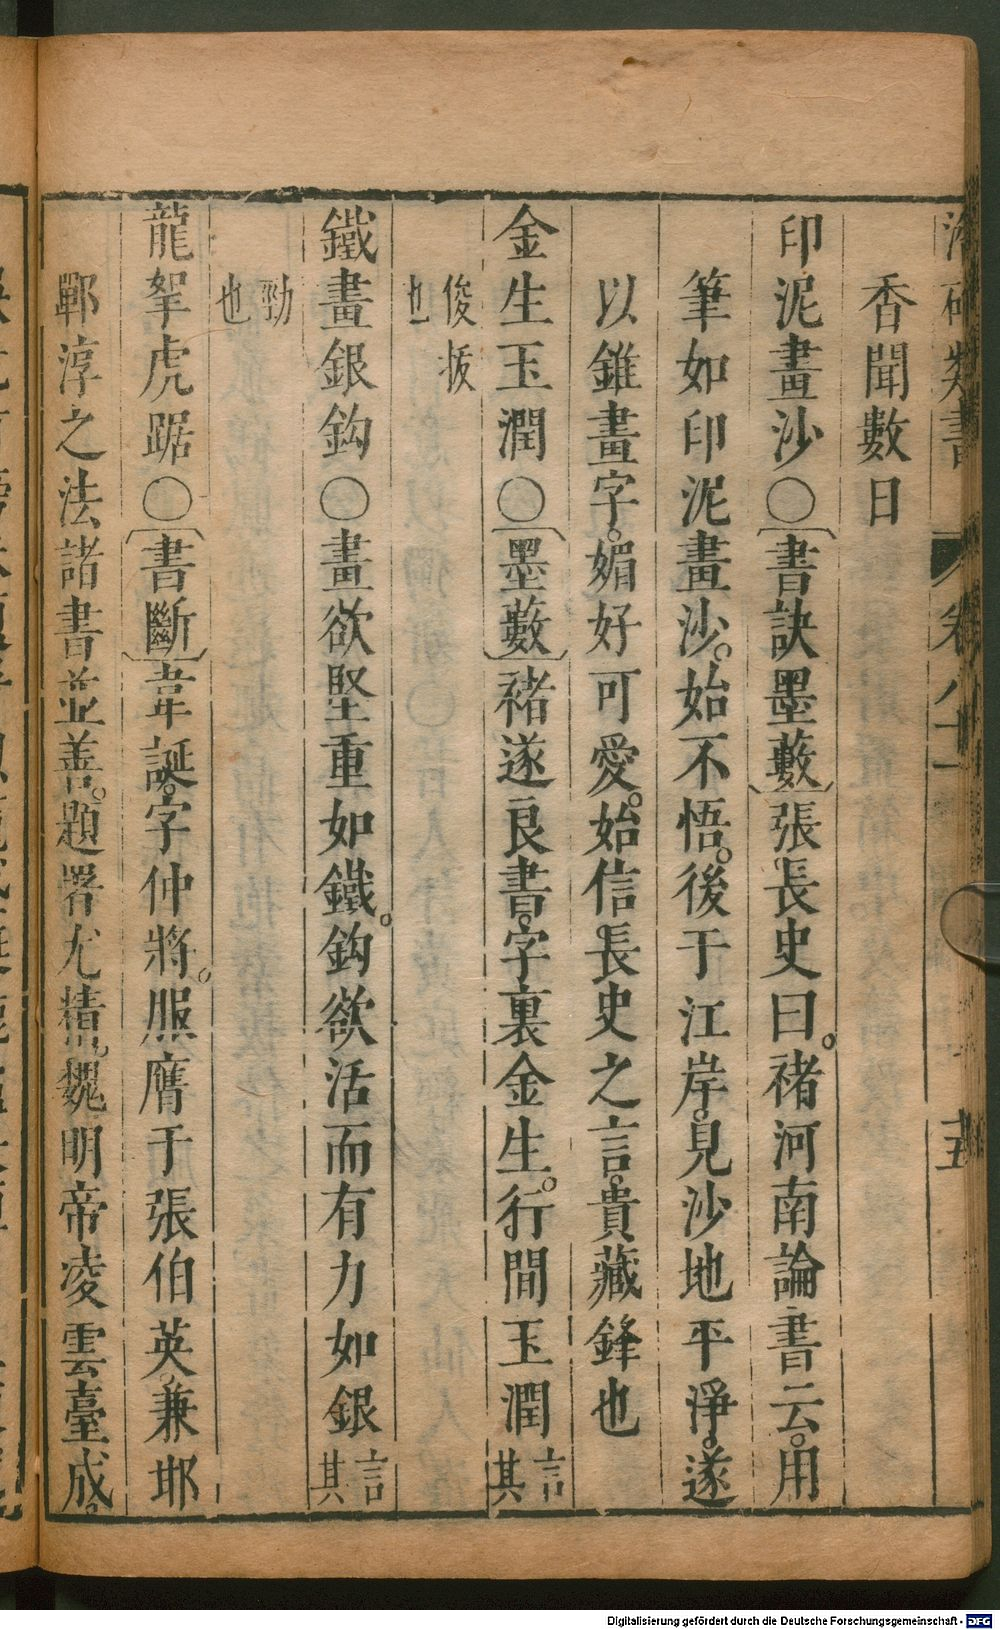 卷八十一
十五
香聞數日
印泥畫沙〇〔書訣墨藪〕張長史曰。褚河南論書云。用
筆如印泥畫沙。始不悟。後于江岸。見沙地平淨。遂
以錐畫字。媚好可愛。始信長史之言。貴藏鋒也
金生玉潤〇〔墨藪〕褚遂良書。字裏金生。行間玉潤言其
俊拔也
鐵畫銀鈎〇畫欲堅重如鐵。鈎欲活而有力如銀言其
勁也
龍拏虎踞〇〔書斷〕韋誕。字仲將。服膺于張伯英。兼邯
鄲淳之法諸書並善。題署尤精。魏明帝凌雲臺成。
Digitalisierung gefördert durch die Deutsche Forschungsgemeinschaft - DFG